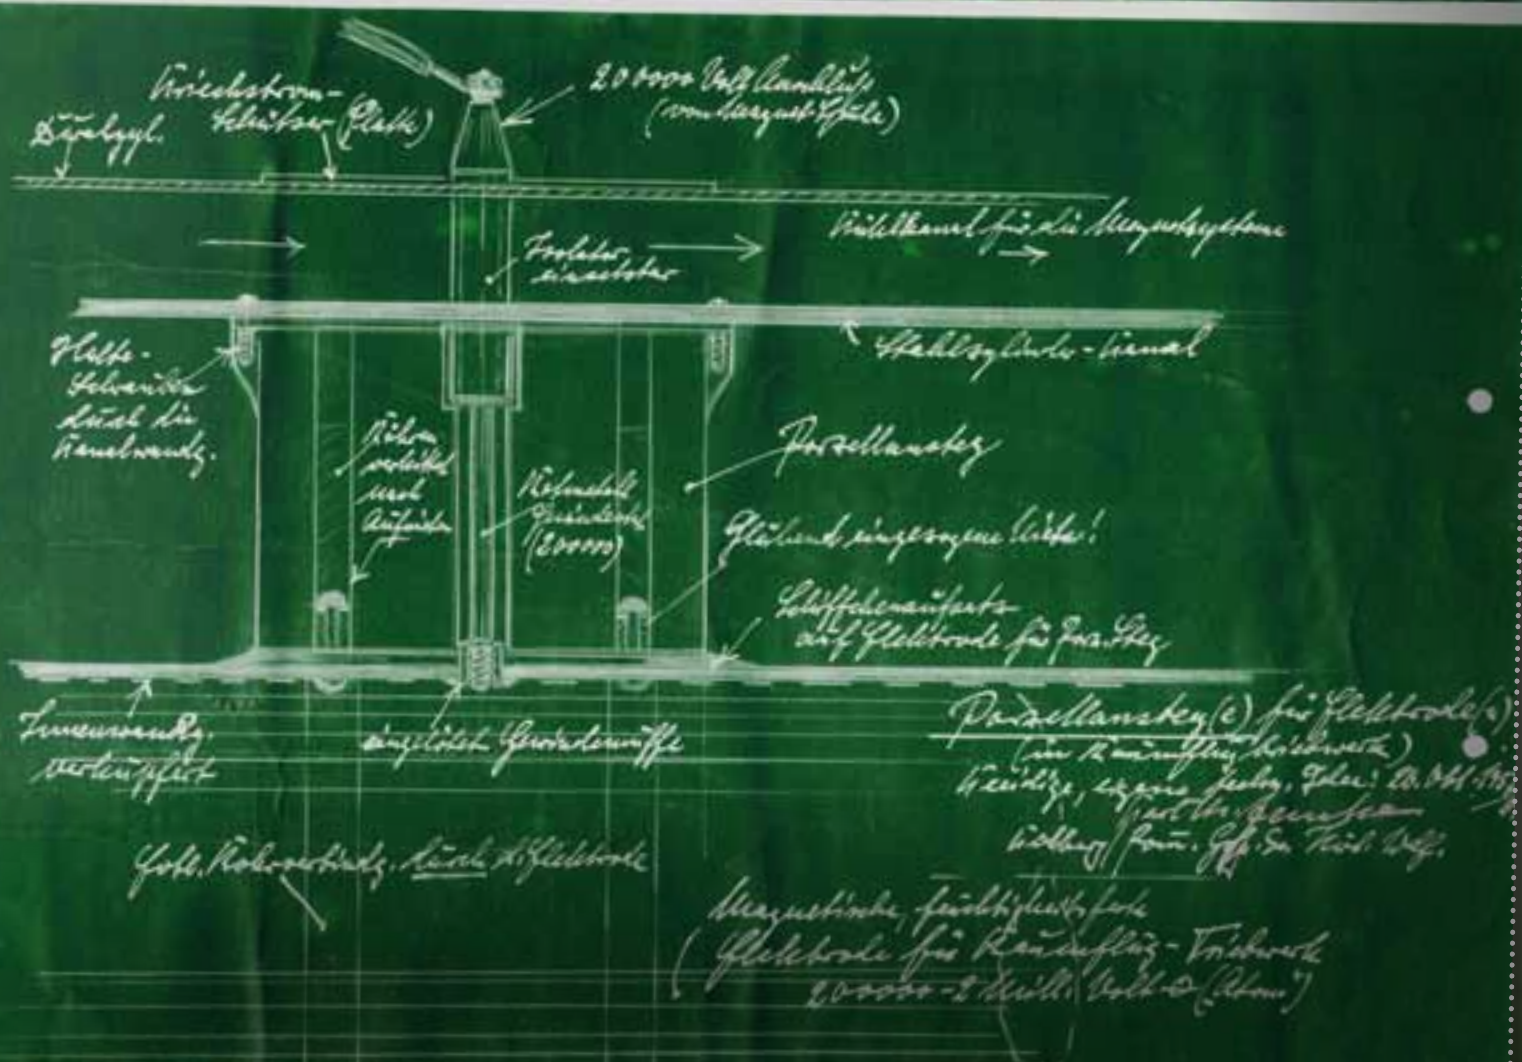 Kriechstrom-
Schützer (Platte)
200000 Volt Anschluß
(vom Magnet-Spule)
Duralzyl.
Kühlkanal für die Magnetsysteme
Isolator
einsetzbar
Stahlzylinder-Kanal
Halte-
Schrauben
durch die
Kanalwandg.
Röhren
verkittet
nach
Porzellansteg
(200000)
Glühend eingezogene Niete!
Schiffchenaufsatz
auf Elektrode für Porz.-Steg
Innenwandg.
verkupfert
eingelötete Gewindemuffe
Porzellansteg(e) für Elektrode(n)
(in Raumflug Triebwerk)
20. Okt.
Rohrverbindg. durch d. Elektrode
Magnetische, feuchtigkeitsfeste
Elektrode für Raumflug-Triebwerk
200000-2 Mill. Volt (Atom)